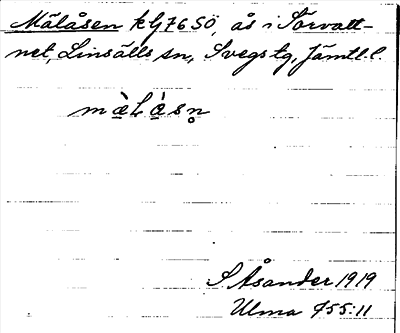 Mälåsen kbg 76 SÖ, ås i Törvatt-
net, Linsälls sn, Svegs tg, Jämtl. l.
mæ̀Lå̀sn̥
S Åsander 1919
Ulma 455:11